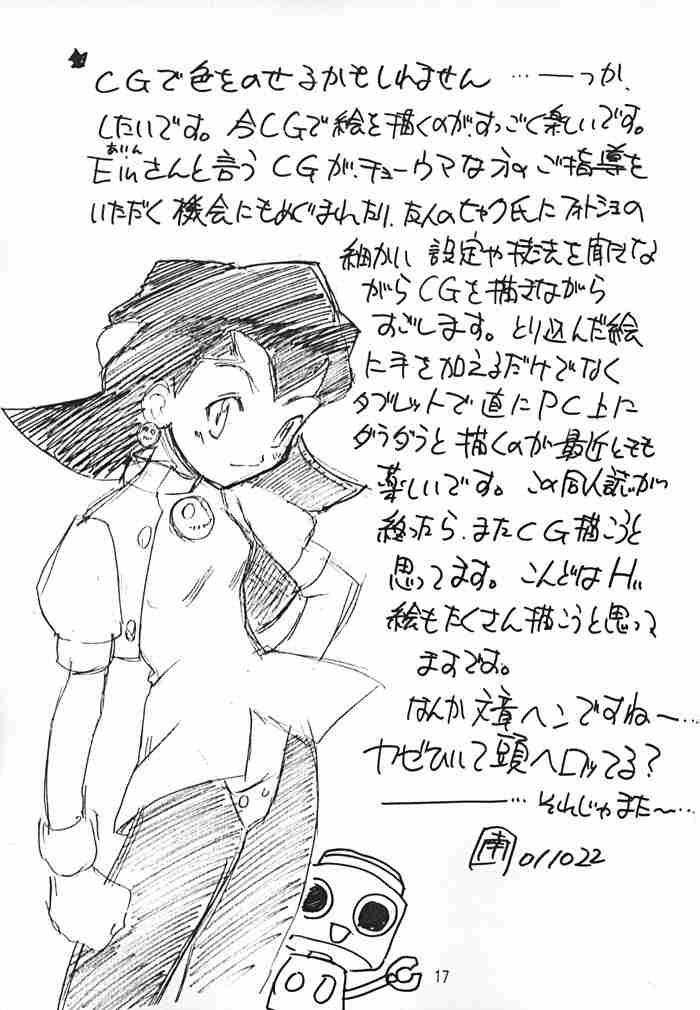 CGで色をのせるかもしれません…―っか、
したいです。今CGで絵を描くのが、すっごく楽しいです。
あいん
Einさんと言うCGが、チョーウマな方のご指導を
いただく機会にもめぐまれたり、友人のヒャク氏にフォトショの
細かい設定や技法を聞きな
がらCGを描きながら
すごします。とり込んだ絵
に手を加えるだけでなく
タブレットで直にPC上に
ダラダラと描くのが最近とても
楽しいです。この同人誌が
終ったら、またCG描こうと
思ってます。こんどはHい
絵もたくさん描こうと思って
ますです。
なんか文章ヘンですねー…
カゼひいて頭ヘロッてる?
―…それじゃまた〜…
南 011022
17